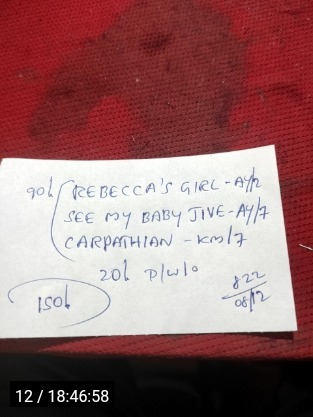 90l REBECCA'S GIRL - AY/2
SEE MY BABY JIVE - AY/7
CARPATHIAN - KM/7
20l P/W/o
150l
822
08/12
12 / 18:46:58